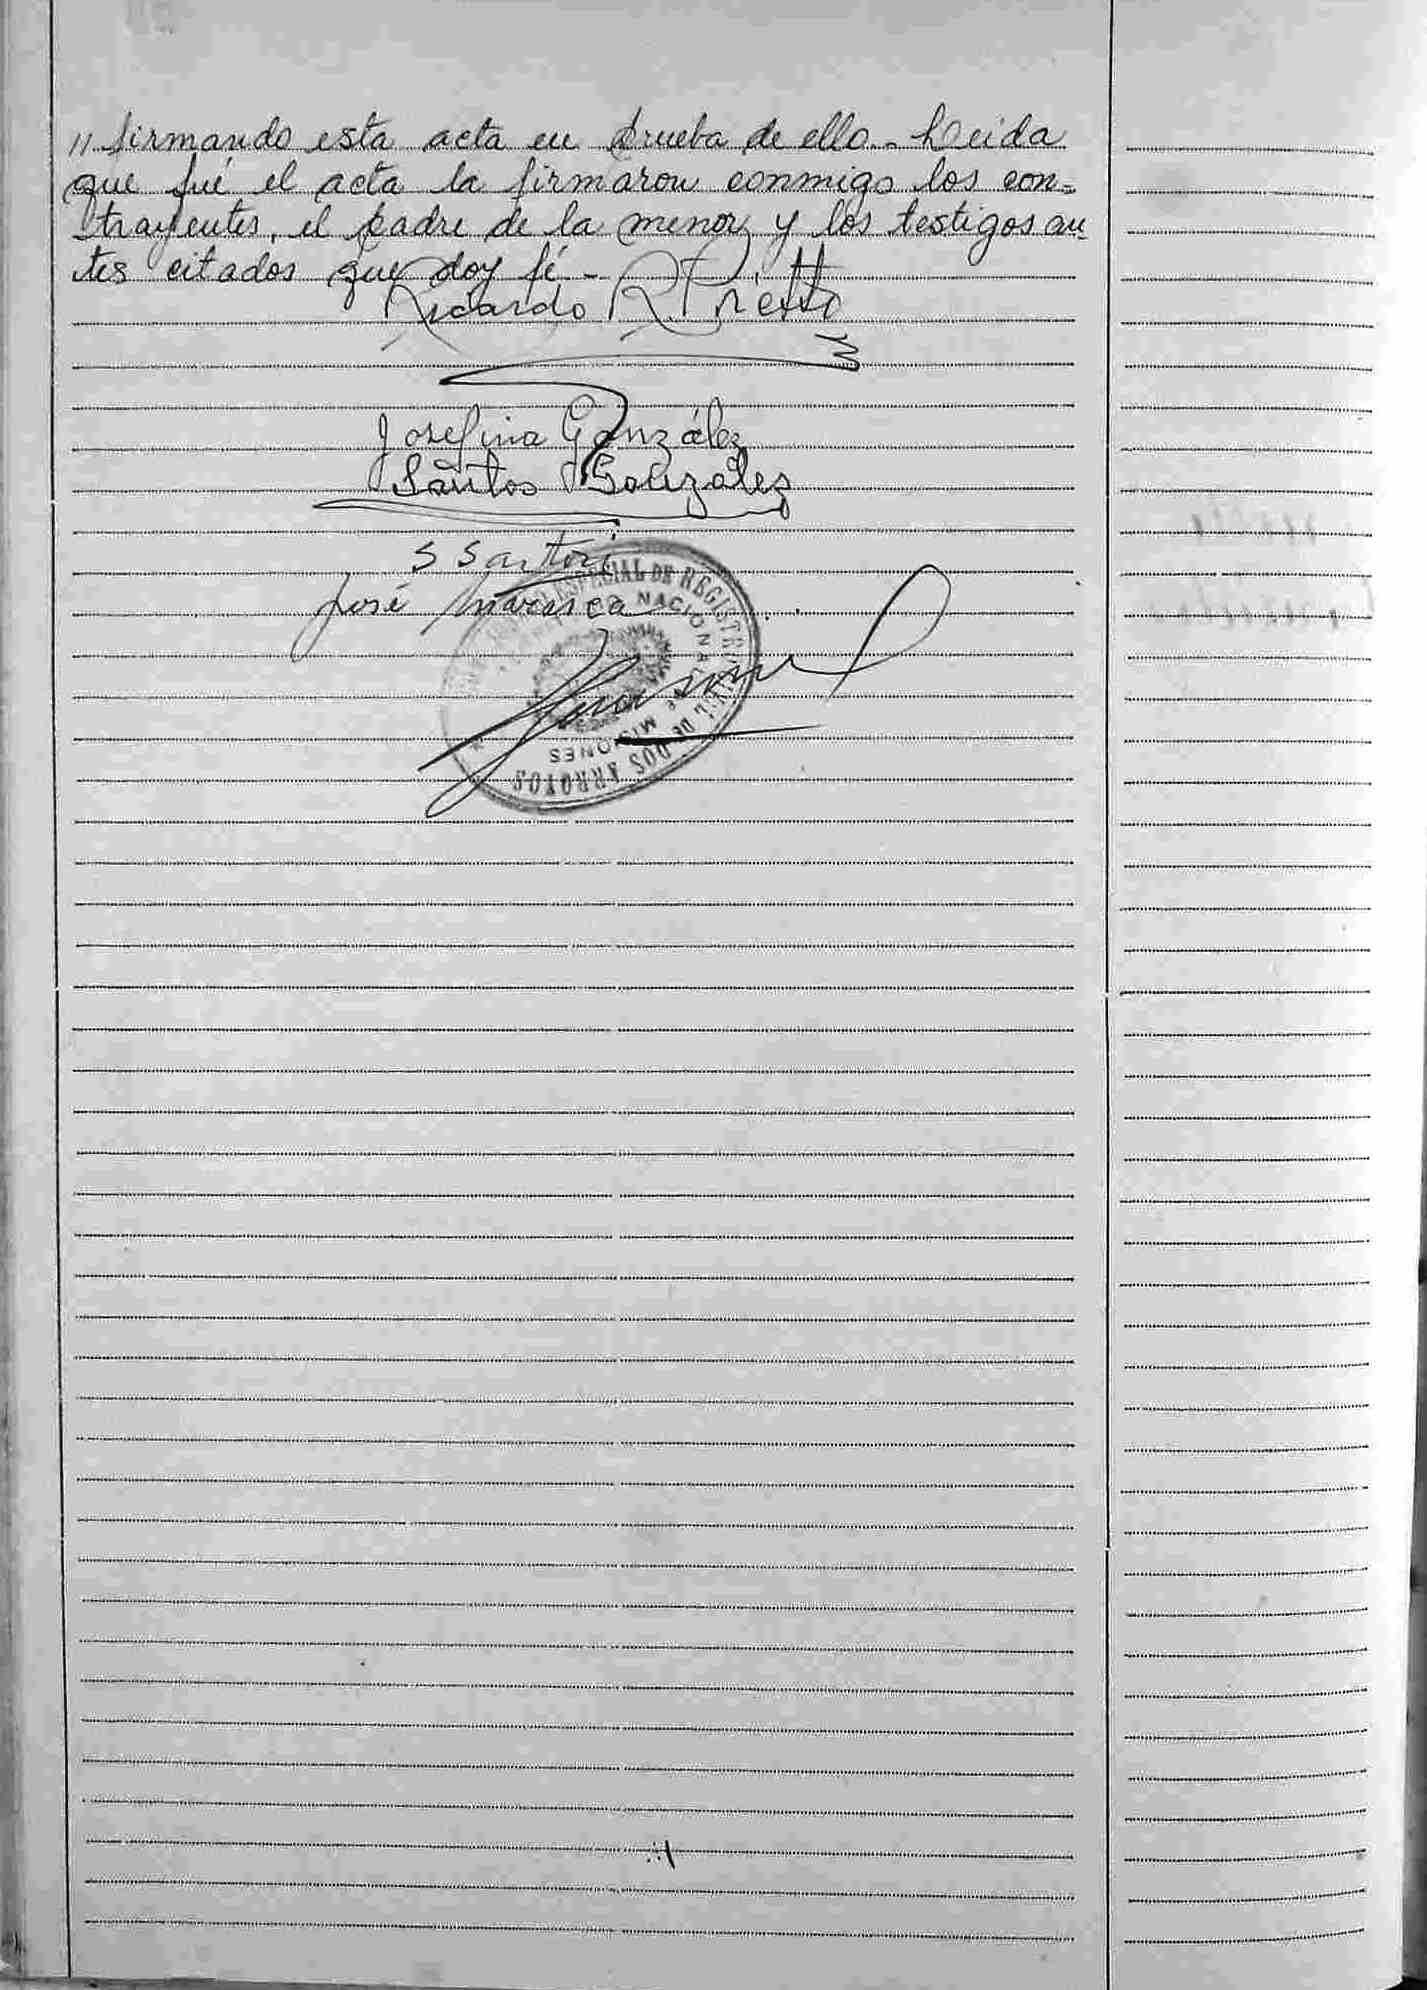 " firmando esta acta en prueba de ello.- Leida
que fué el acta la firmaron conmigo los con-
trayentes, el padre de la menor y los testigos an-
tes citados que doy fé -
Ricardo R. Prietto
Josefina González
Santos Gonzáles
S Sartori
José Marasca
ESPECIAL DE REGISTRO CIVIL DE DOS ARROYOS
NACIONAL DE MISIONES